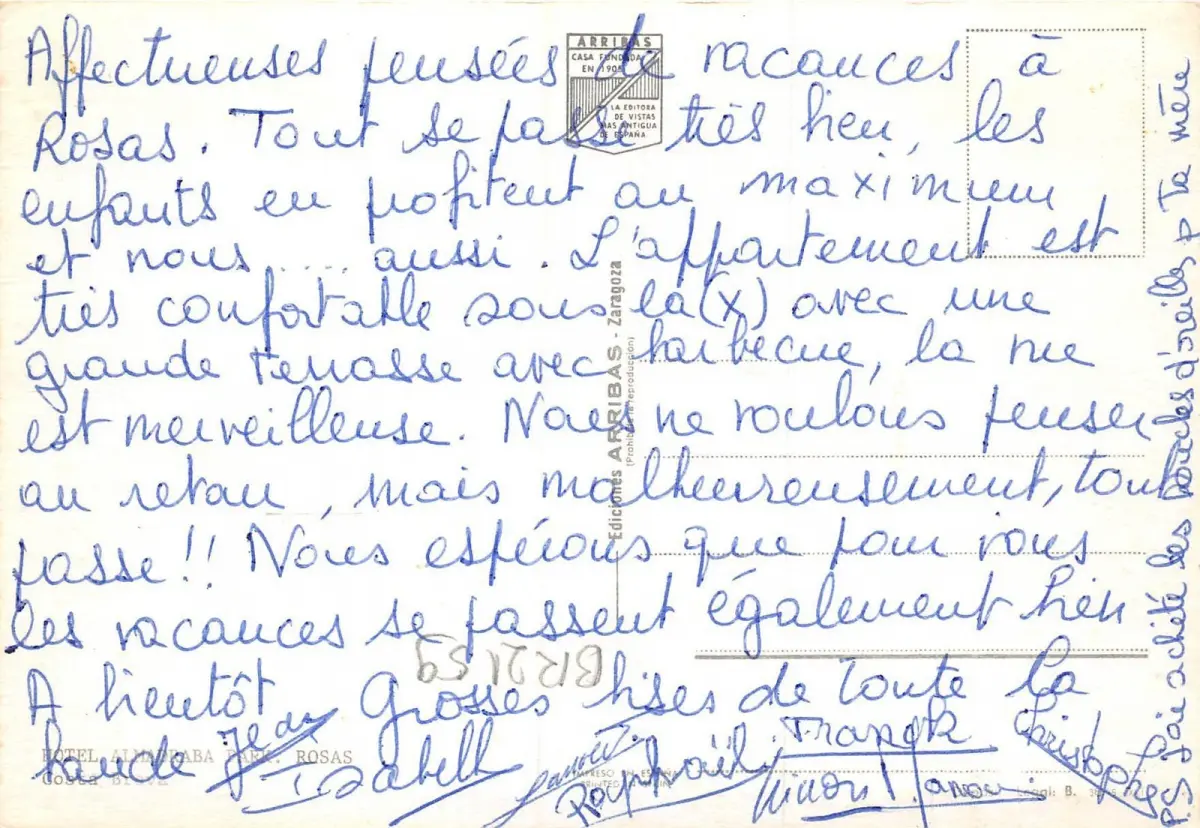 Affectueuses pensées de vacances à
Rosas. Tout se passe très bien, les
enfants en profitent au maximum
et nous .... aussi. L'appartement est
très confortable sous la (x) avec une
grande terrasse avec barbecue, la vue
est merveilleuse. Nous ne voulons penser
au retour, mais malheureusement, tout
passe!! Nous espérons que pour vous
les vacances se passent également bien
A bientôt Grosses bises de toute la
bande Jean
Isabelle
Raphaël
Franck
Ninon
Christophe
P.S. J'ai acheté les boucles d'oreilles à Ta mère
ARRIBAS
CASA FUNDADA
EN 1905
LA EDITORA
DE VISTAS
MAS ANTIGUA
DE ESPAÑA
Ediciones ARRIBAS - Zaragoza
(Prohibida la reproducción)
BR2159
HOTEL ALMADRABA PARK. ROSAS
Costa Brava
IMPRESO EN ESPAÑA
PRINTED IN SPAIN